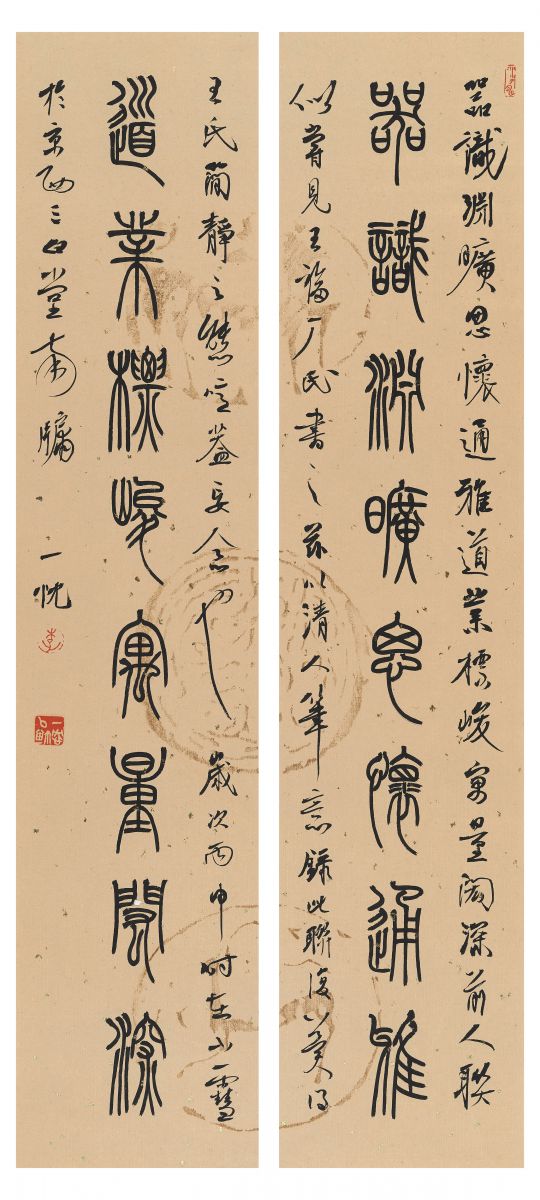 器識淵曠思懷通雅道業標峻寓量閎深前人聯
器識淵曠思懷通雅
似嘗見王福厂氏書之茲以清人筆意錄此聯復以冀得
王氏簡靜之態蓋妄人念也 歲次丙申時在小雪
道業標峻寓量閎深
於京西三堂南牖 一忱
李